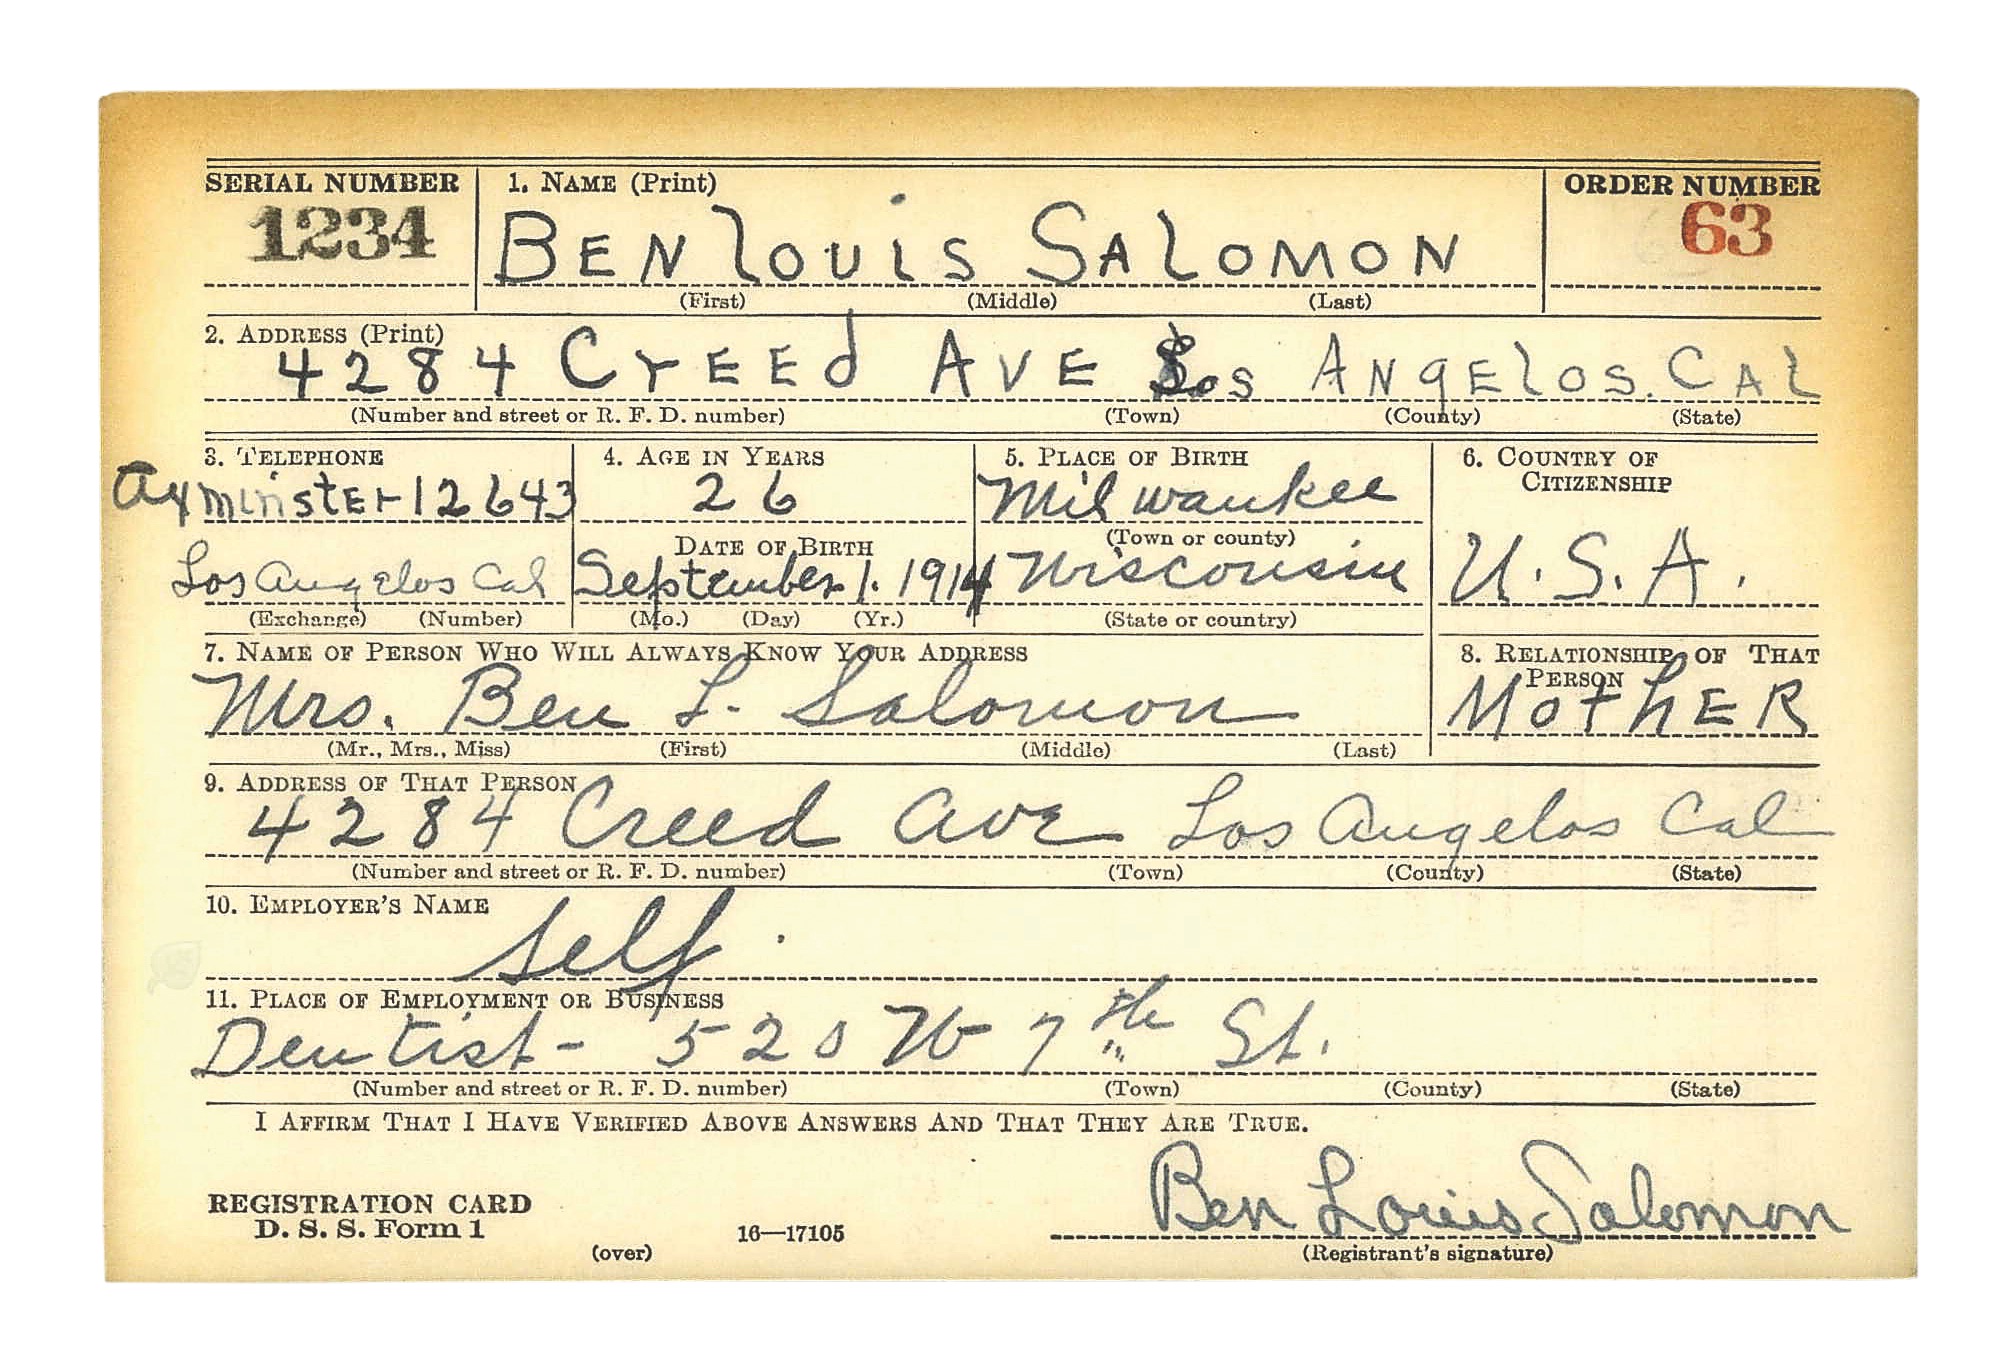 SERIAL NUMBER 1. NAME (Print) ORDER NUMBER
1234 BEN LOUIS SALOMON 63
(First) (Middle) (Last)
2. ADDRESS (Print)
4284 CREED AVE Los ANgElos. CAL
(Number and street or R. F. D. number) (Town) (County) (State)
3. TELEPHONE 4. AGE IN YEARS 5. PLACE OF BIRTH 6. COUNTRY OF CITIZENSHIP
Axminister 12643 26 Milwaukee
(Town or county)
DATE OF BIRTH
Los Angelos Cal September 1. 1914 Wisconsin U.S.A.
(Exchange) (Number) (Mo.) (Day) (Yr.) (State or country)
7. NAME OF PERSON WHO WILL ALWAYS KNOW YOUR ADDRESS 8. RELATIONSHIP OF THAT PERSON
Mrs. Ben L. Salomon MOTHER
(Mr., Mrs., Miss) (First) (Middle) (Last)
9. ADDRESS OF THAT PERSON
4284 Creed Ave Los Angelos Cal
(Number and street or R. F. D. number) (Town) (County) (State)
10. EMPLOYER'S NAME
self.
11. PLACE OF EMPLOYMENT OR BUSINESS
Dentist - 520 W 7th St.
(Number and street or R. F. D. number) (Town) (County) (State)
I AFFIRM THAT I HAVE VERIFIED ABOVE ANSWERS AND THAT THEY ARE TRUE.
Ben Louis Salomon
REGISTRATION CARD
D. S. S. Form 1 16—17105
(over) (Registrant's signature)